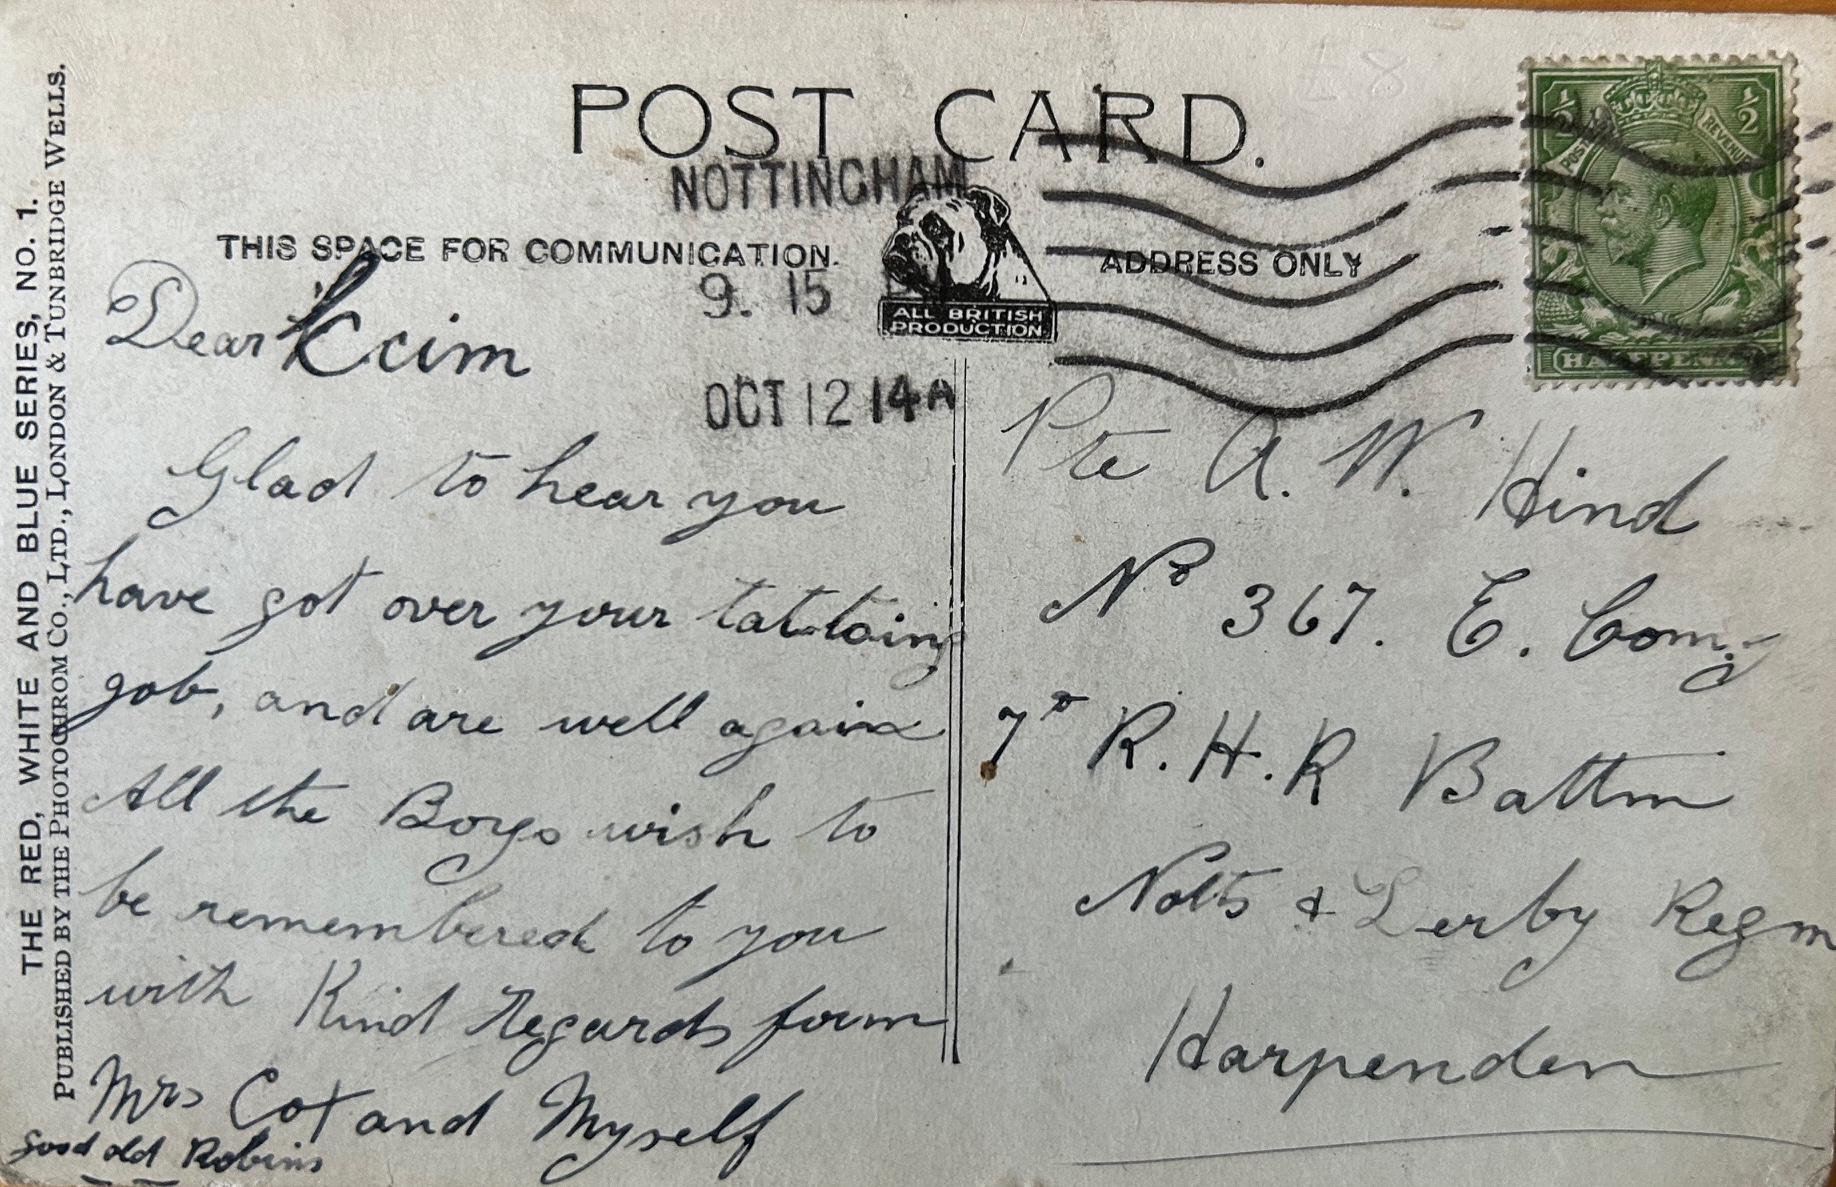 POST CARD.
NOTTINGHAM
THIS SPACE FOR COMMUNICATION.
ADDRESS ONLY
9. 15
ALL BRITISH
PRODUCTION.
OCT 12 14A
½ ½
POSTAGE REVENUE
HALFPENNY
THE RED, WHITE AND BLUE SERIES, NO. 1.
PUBLISHED BY THE PHOTOCHROM CO., LTD., LONDON & TUNBRIDGE WELLS.
Dear
Glad to hear you
have got over your tattoing
job, and are well again
All the Boys wish to
be remembered to you
with Kind Regards form
Mrs Cox and Myself
Good old Robins
Pte A. W. Hind
No 367. E. Comy
7th R. H. R Battm
Notts & Derby Regm
Harpenden